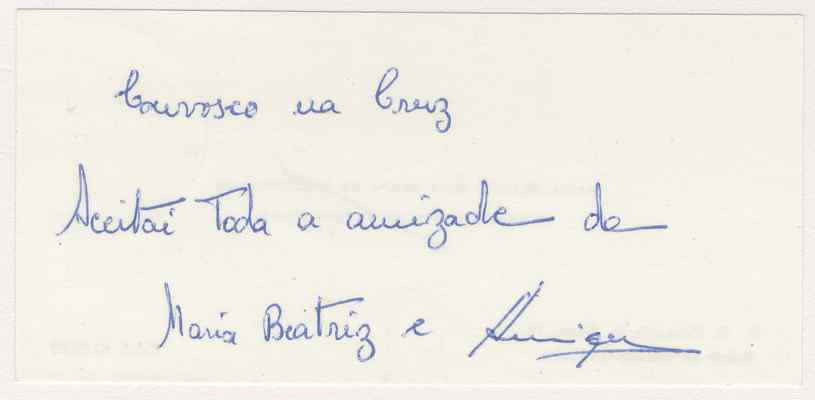 Convosco na Cruz
Aceitai Toda a amizade da
Maria Beatriz e Henrique